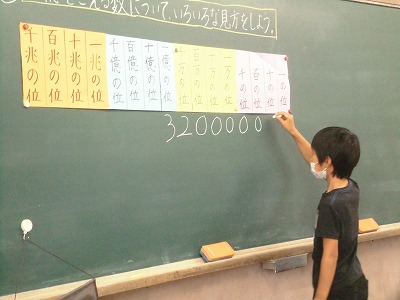 をこえる数について、いろいろな見方をしよう。
千兆の位
百兆の位
十兆の位
一兆の位
千億の位
百億の位
十億の位
一億の位
千万の位
百万の位
十万の位
一万の位
千の位
百の位
十の位
一の位
3200000